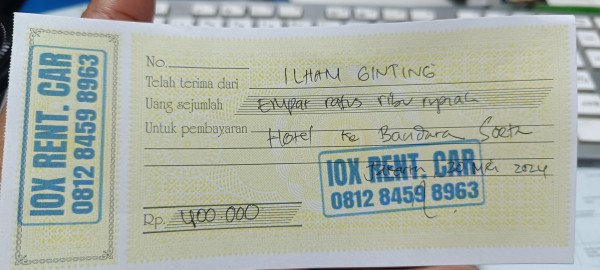 IOX RENT. CAR
0812 8459 8963
No.
Telah terima dari ILHAM GINTING
Uang sejumlah Empat ratus ribu rupiah
Untuk pembayaran Hotel ke Bandara Soeta
IOX RENT. CAR
0812 8459 8963
Mei 2024
Rp. 400 000